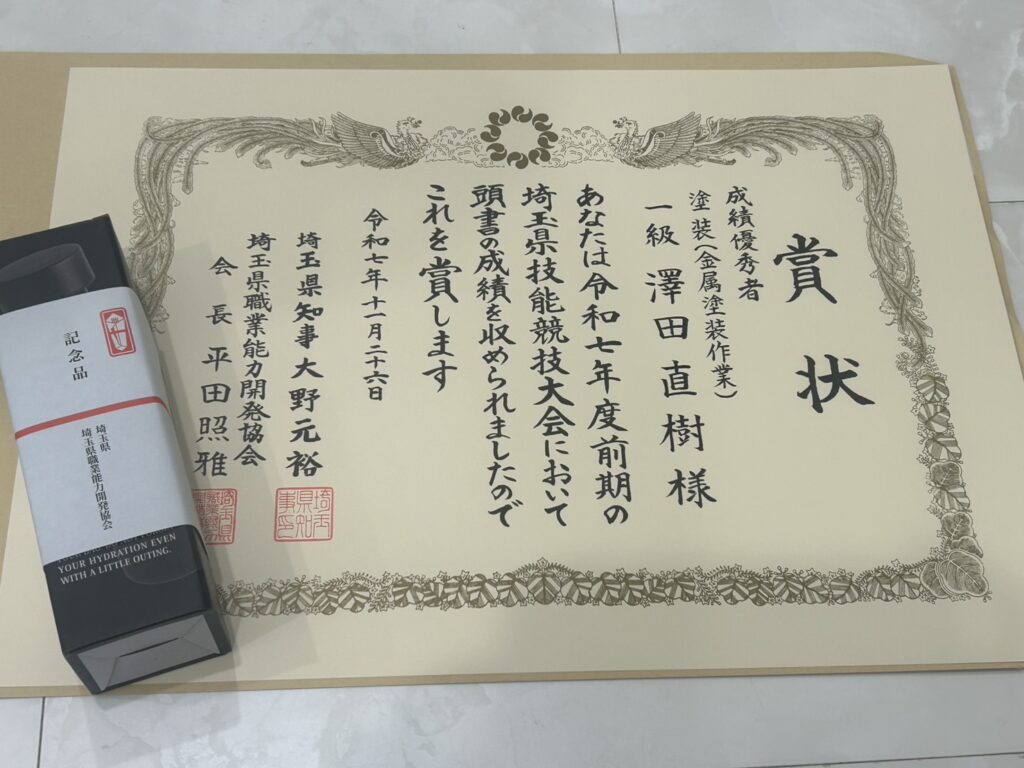 賞状
成績優秀者
塗装(金属塗装作業)
一級 澤田直樹様
あなたは令和七年度前期の
埼玉県技能競技大会において
頭書の成績を収められましたので
これを賞します
令和七年十一月二十六日
埼玉県知事 大野元裕
埼玉県職業能力開発協会
会長 平田照雅
埼玉県知事印
記念品
埼玉県
埼玉県職業能力開発協会
YOUR HYDRATION EVEN
WITH A LITTLE OUTING.